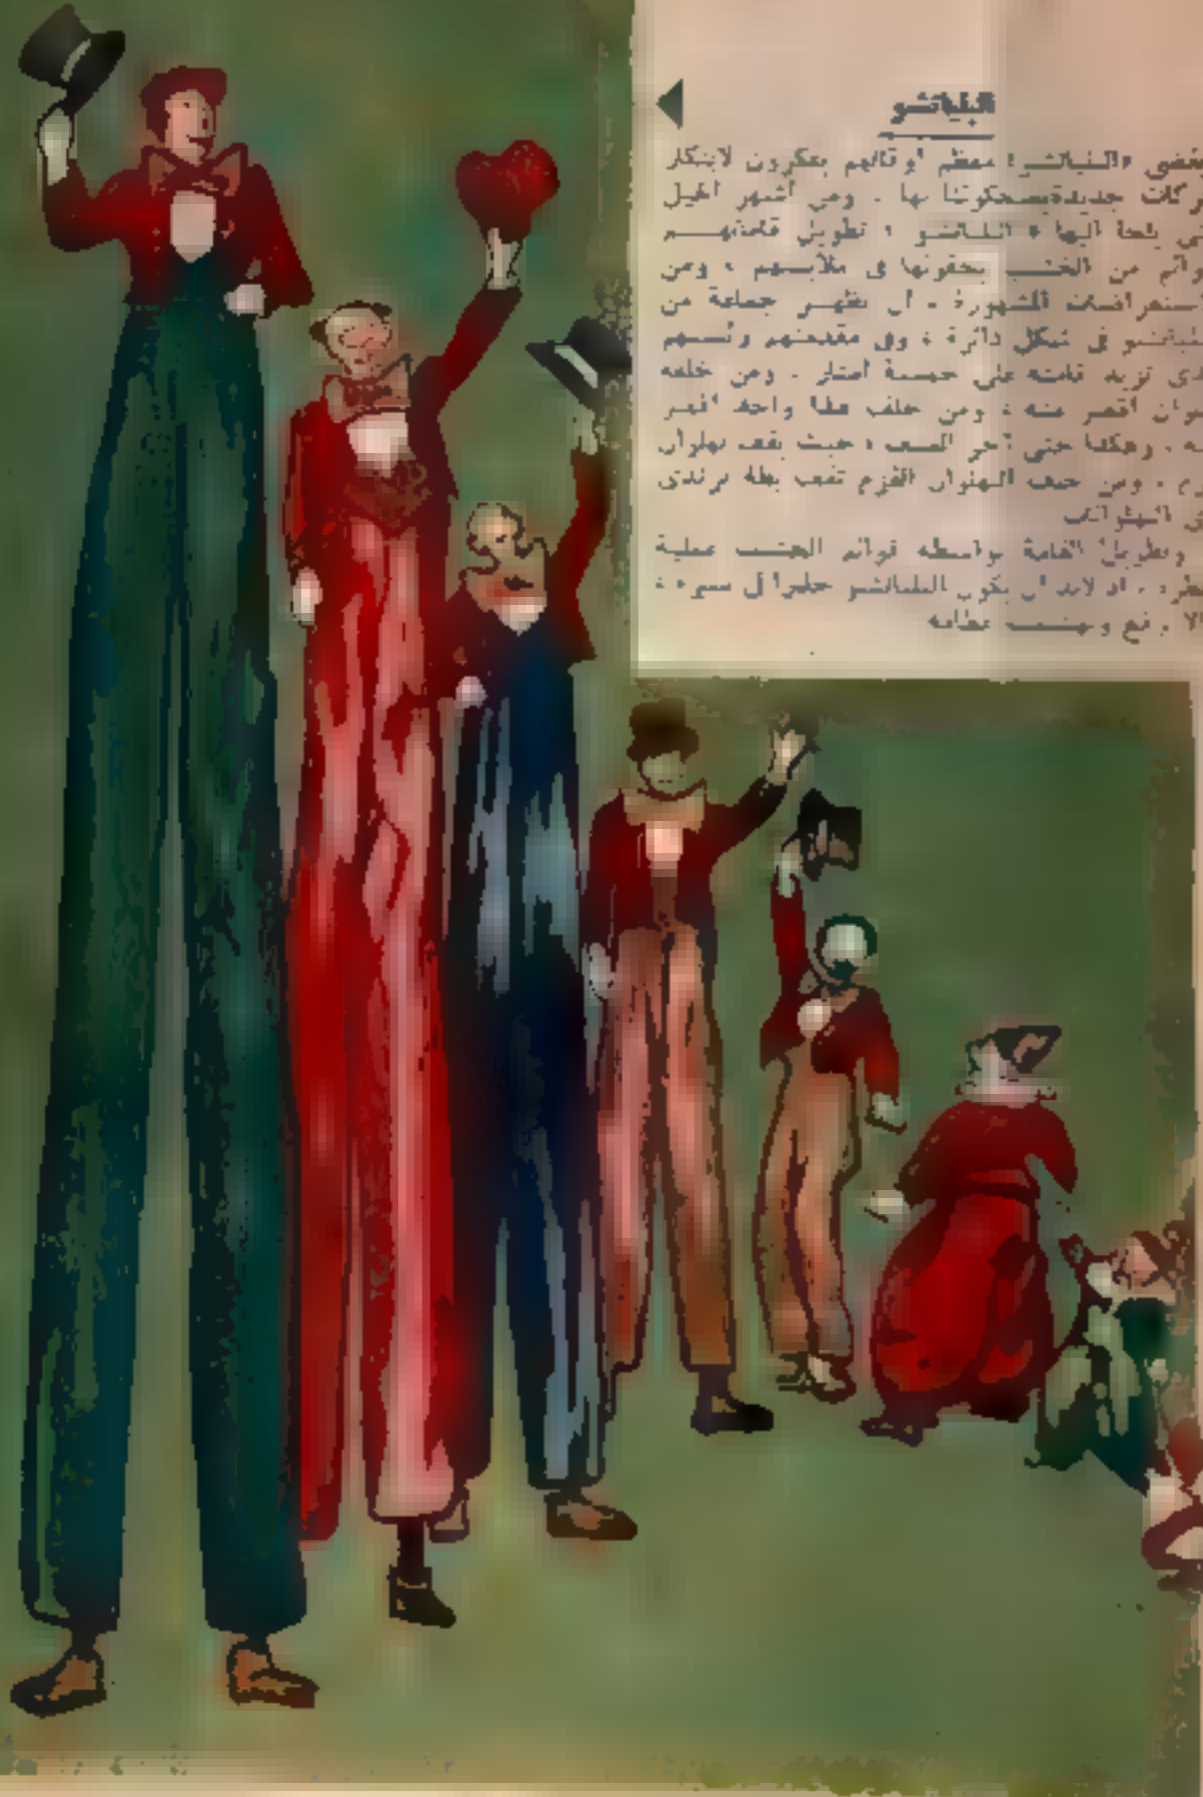 البلياتشو
يقضي «البلياتشو» معظم أوقاتهم يفكرون لابتكار
حركات جديدة يضحكوننا بها . ومن أشهر الحيل
التي يلجأ إليها « البلياتشو » تطويل قامتهم
قوائم من الخشب يخفونها في ملابسهم ، ومن
الاستعراضات المشهورة ، أن تظهر جماعة من
البلياتشو في شكل دائرة ، وفي مقدمتهم رئيسهم
الذي تزيد قامته على خمسة أمتار . ومن خلفه
بهلوان أقصر منه ، ومن خلف هذا واحد أقصر
منه ، وهكذا حتى آخر الصف ، حيث يقف بهلوان
قزم ، ومن خلف البهلوان القزم تقف بطة ترتدي
البهلوان
وتطويل القامة بواسطة قوائم الخشب عملية
خطرة ، إذ لابد أن يكون البلياتشو حذرا في سيره ،
وإلا وقع عظامه